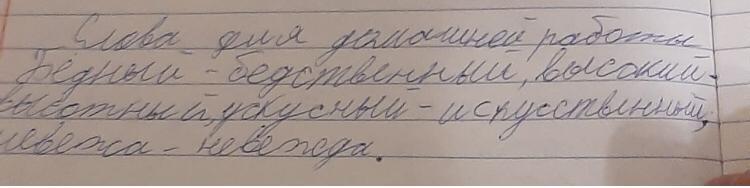 Слова для домашней работы
Бедный - бедственный, высокий -
высотный, искусный - искусственный,
невежа - невежда.